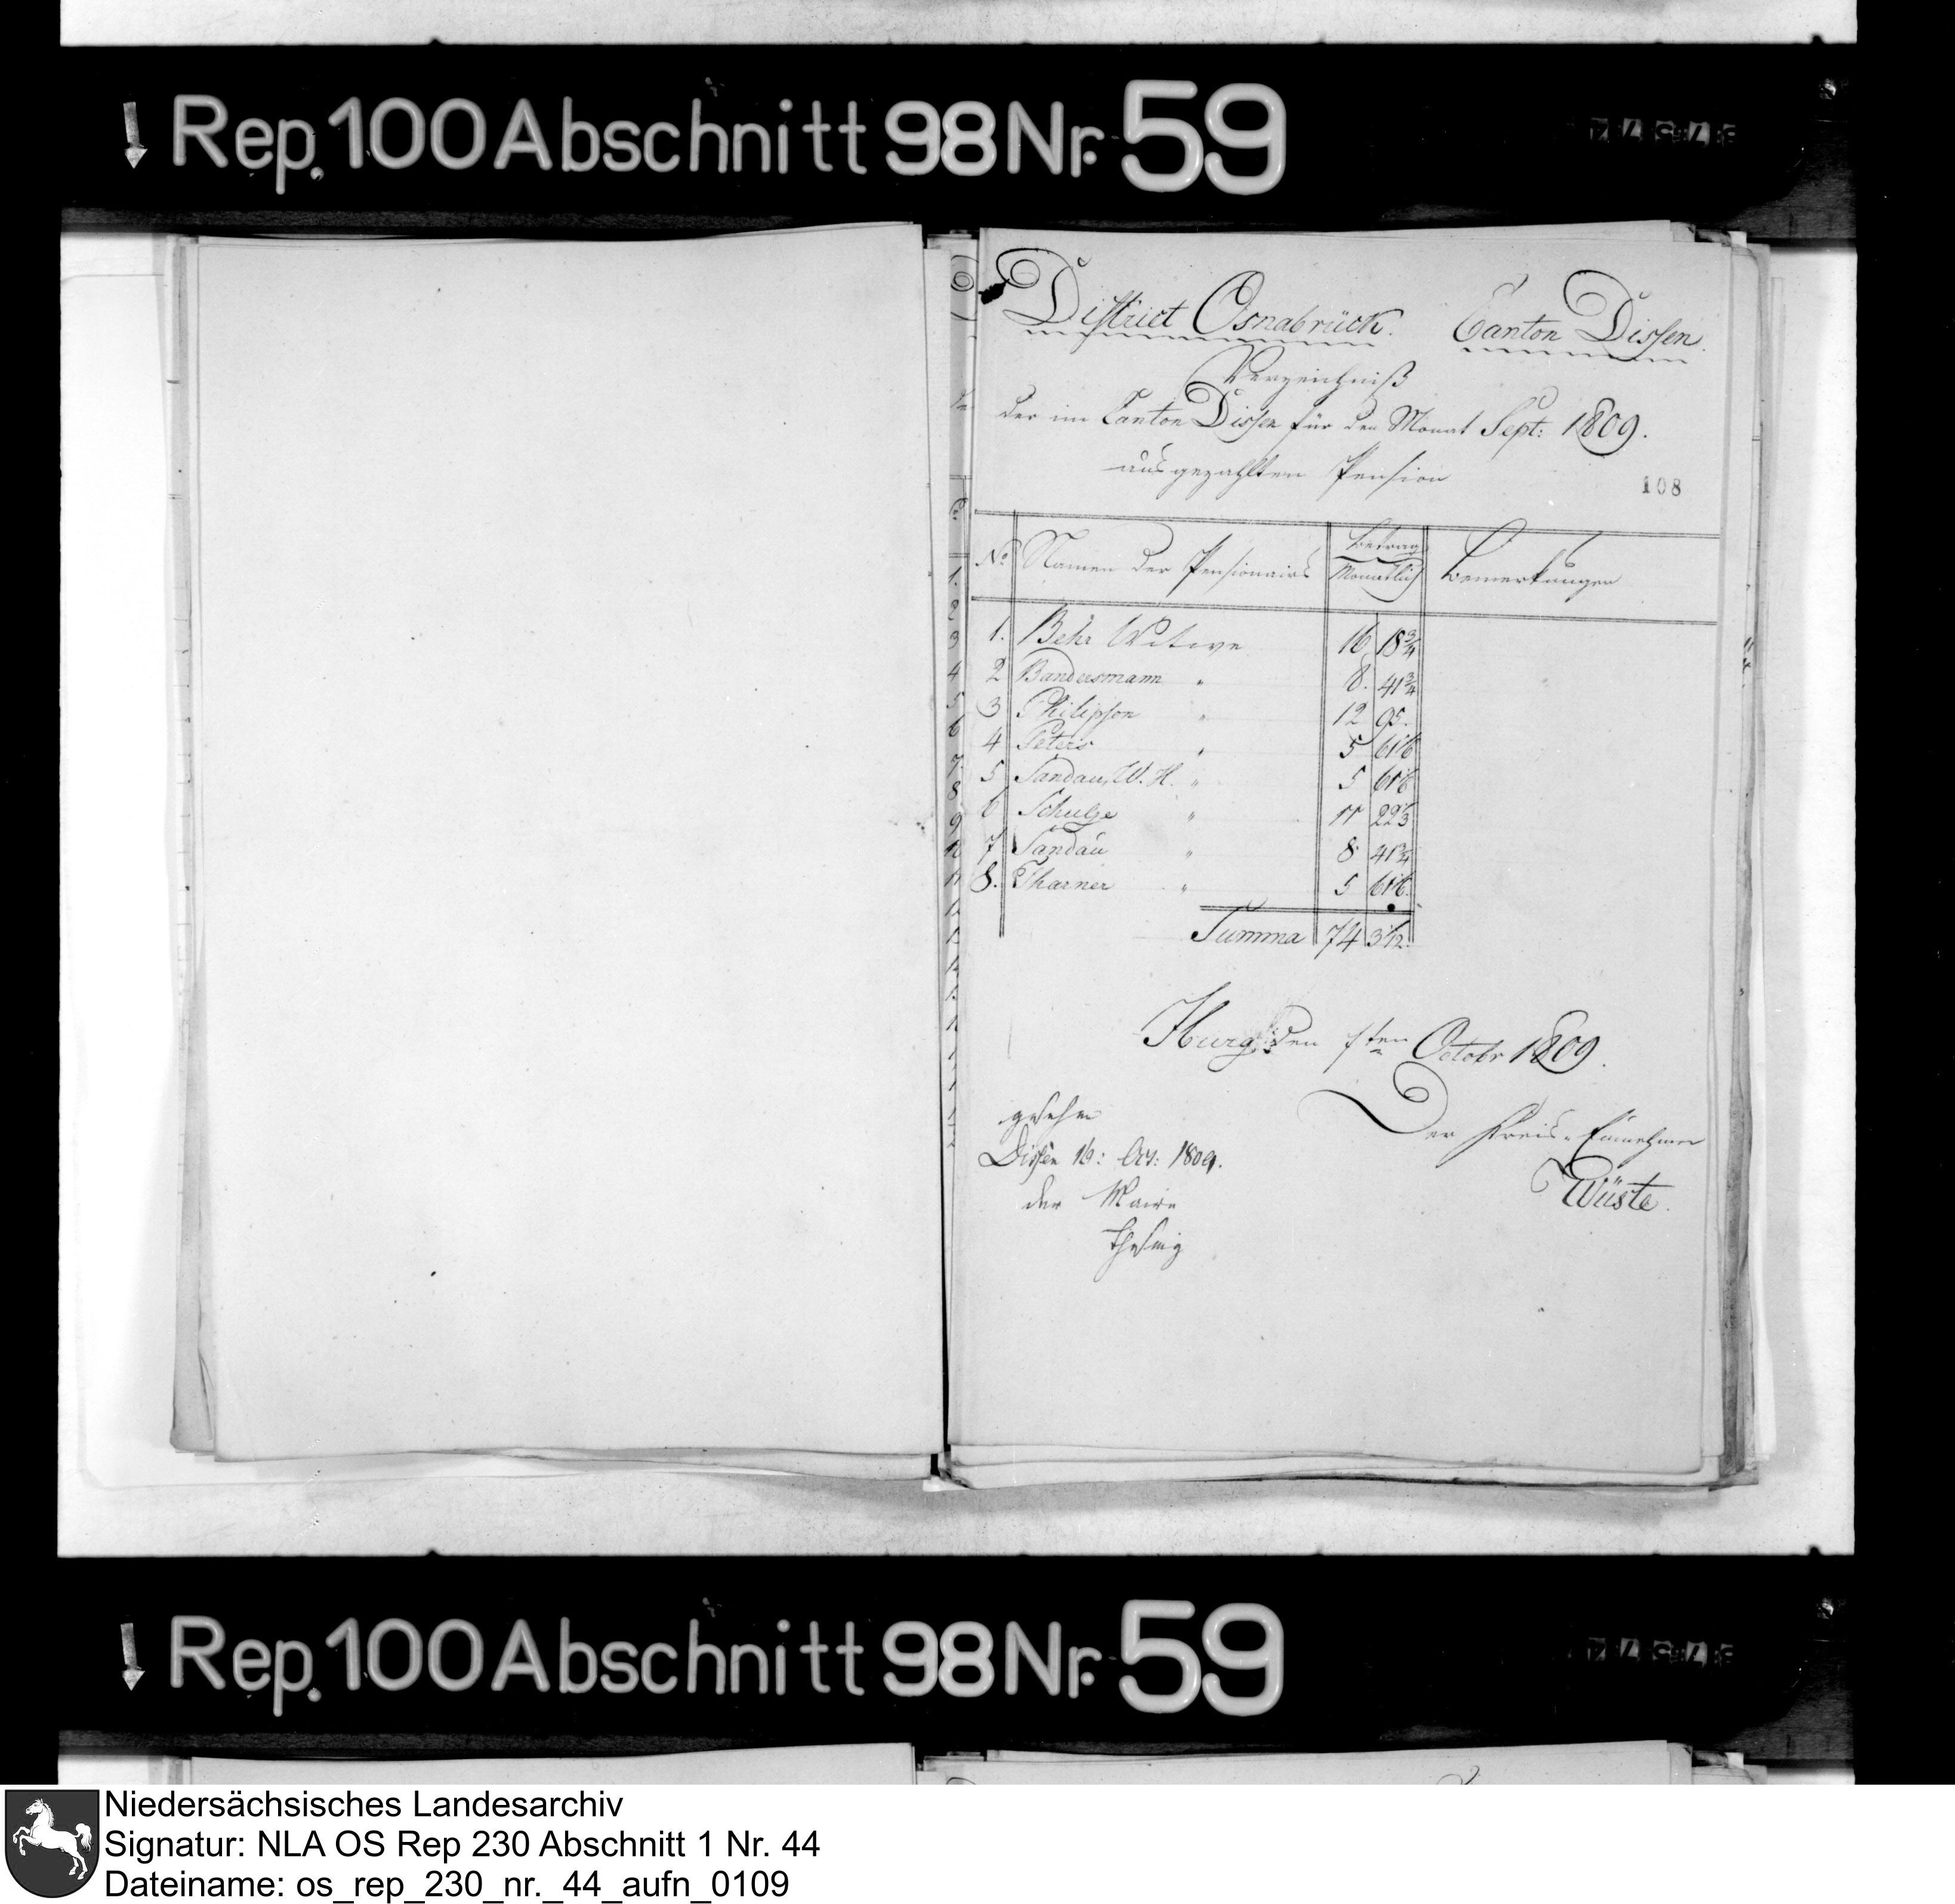 Rep. 100 Abschnitt 98 Nr. 59
District Osnabrück. Canton Dissen.
Verzeichniß
der im Canton Dissen für den Monat Sept: 1809.
ausgezahlten Pension
108
No Namen der Pensionairs Betrag Monatlich Bemerkungen
1. Behr Witwe 16 18 3/4
2 Bandersmann " 8. 41 3/4
3 Philipson " 12 95.
4 Peters " 5 61 1/6
5 Sandau, W. H. " 5 61 1/6
6 Schulze " 11 22 1/3
7 Sandau " 8 41 3/4
8. Tharner " 5 61 1/6
Summa 74 3 1/12
Iburg den 1ten Octobr 1809.
Der Kreis-Einnehmer
Wüste.
gesehen
Dissen 16: Oct: 1809.
der Maire
Rep. 100 Abschnitt 98 Nr. 59
Niedersächsisches Landesarchiv
Signatur: NLA OS Rep 230 Abschnitt 1 Nr. 44
Dateiname: os_rep_230_nr._44_aufn_0109